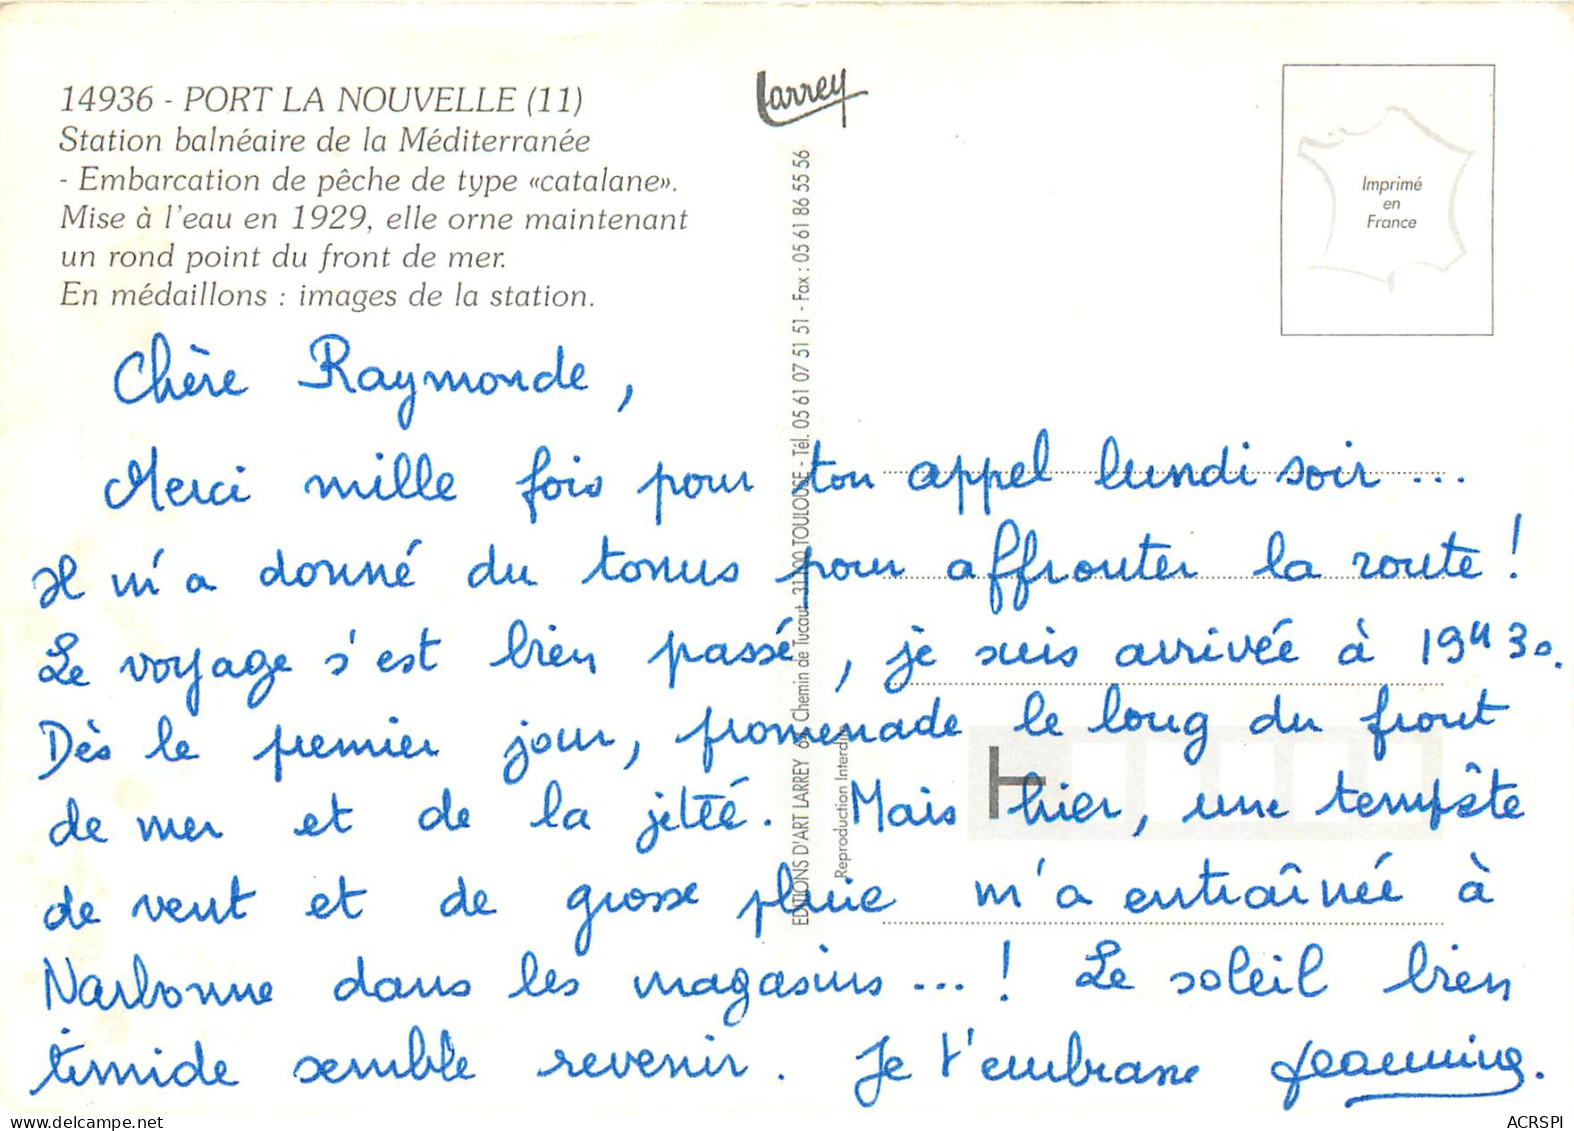 14936 - PORT LA NOUVELLE (11)
Station balnéaire de la Méditerranée
- Embarcation de pêche de type «catalane».
Mise à l'eau en 1929, elle orne maintenant
un rond point du front de mer.
En médaillons : images de la station.
Larrey
Imprimé
en
France
EDITIONS D'ART LARREY Chemin de Tucaut 31100 TOULOUSE - Tél. 05 61 07 51 51 - Fax : 05 61 86 55 56
Reproduction Interdite
Chère Raymonde,
Merci mille fois pour ton appel lundi soir ...
Il m'a donné du tonus pour affronter la route !
Le voyage s'est bien passé, je suis arrivée à 19H30.
Dès le premier jour, promenade le long du front
de mer et de la jetée. Mais hier, une tempête
de vent et de grosse pluie m'a entraînée à
Narbonne dans les magasins ... ! Le soleil bien
timide semble revenir. Je t'embrasse Jeannine.
ACRSPI